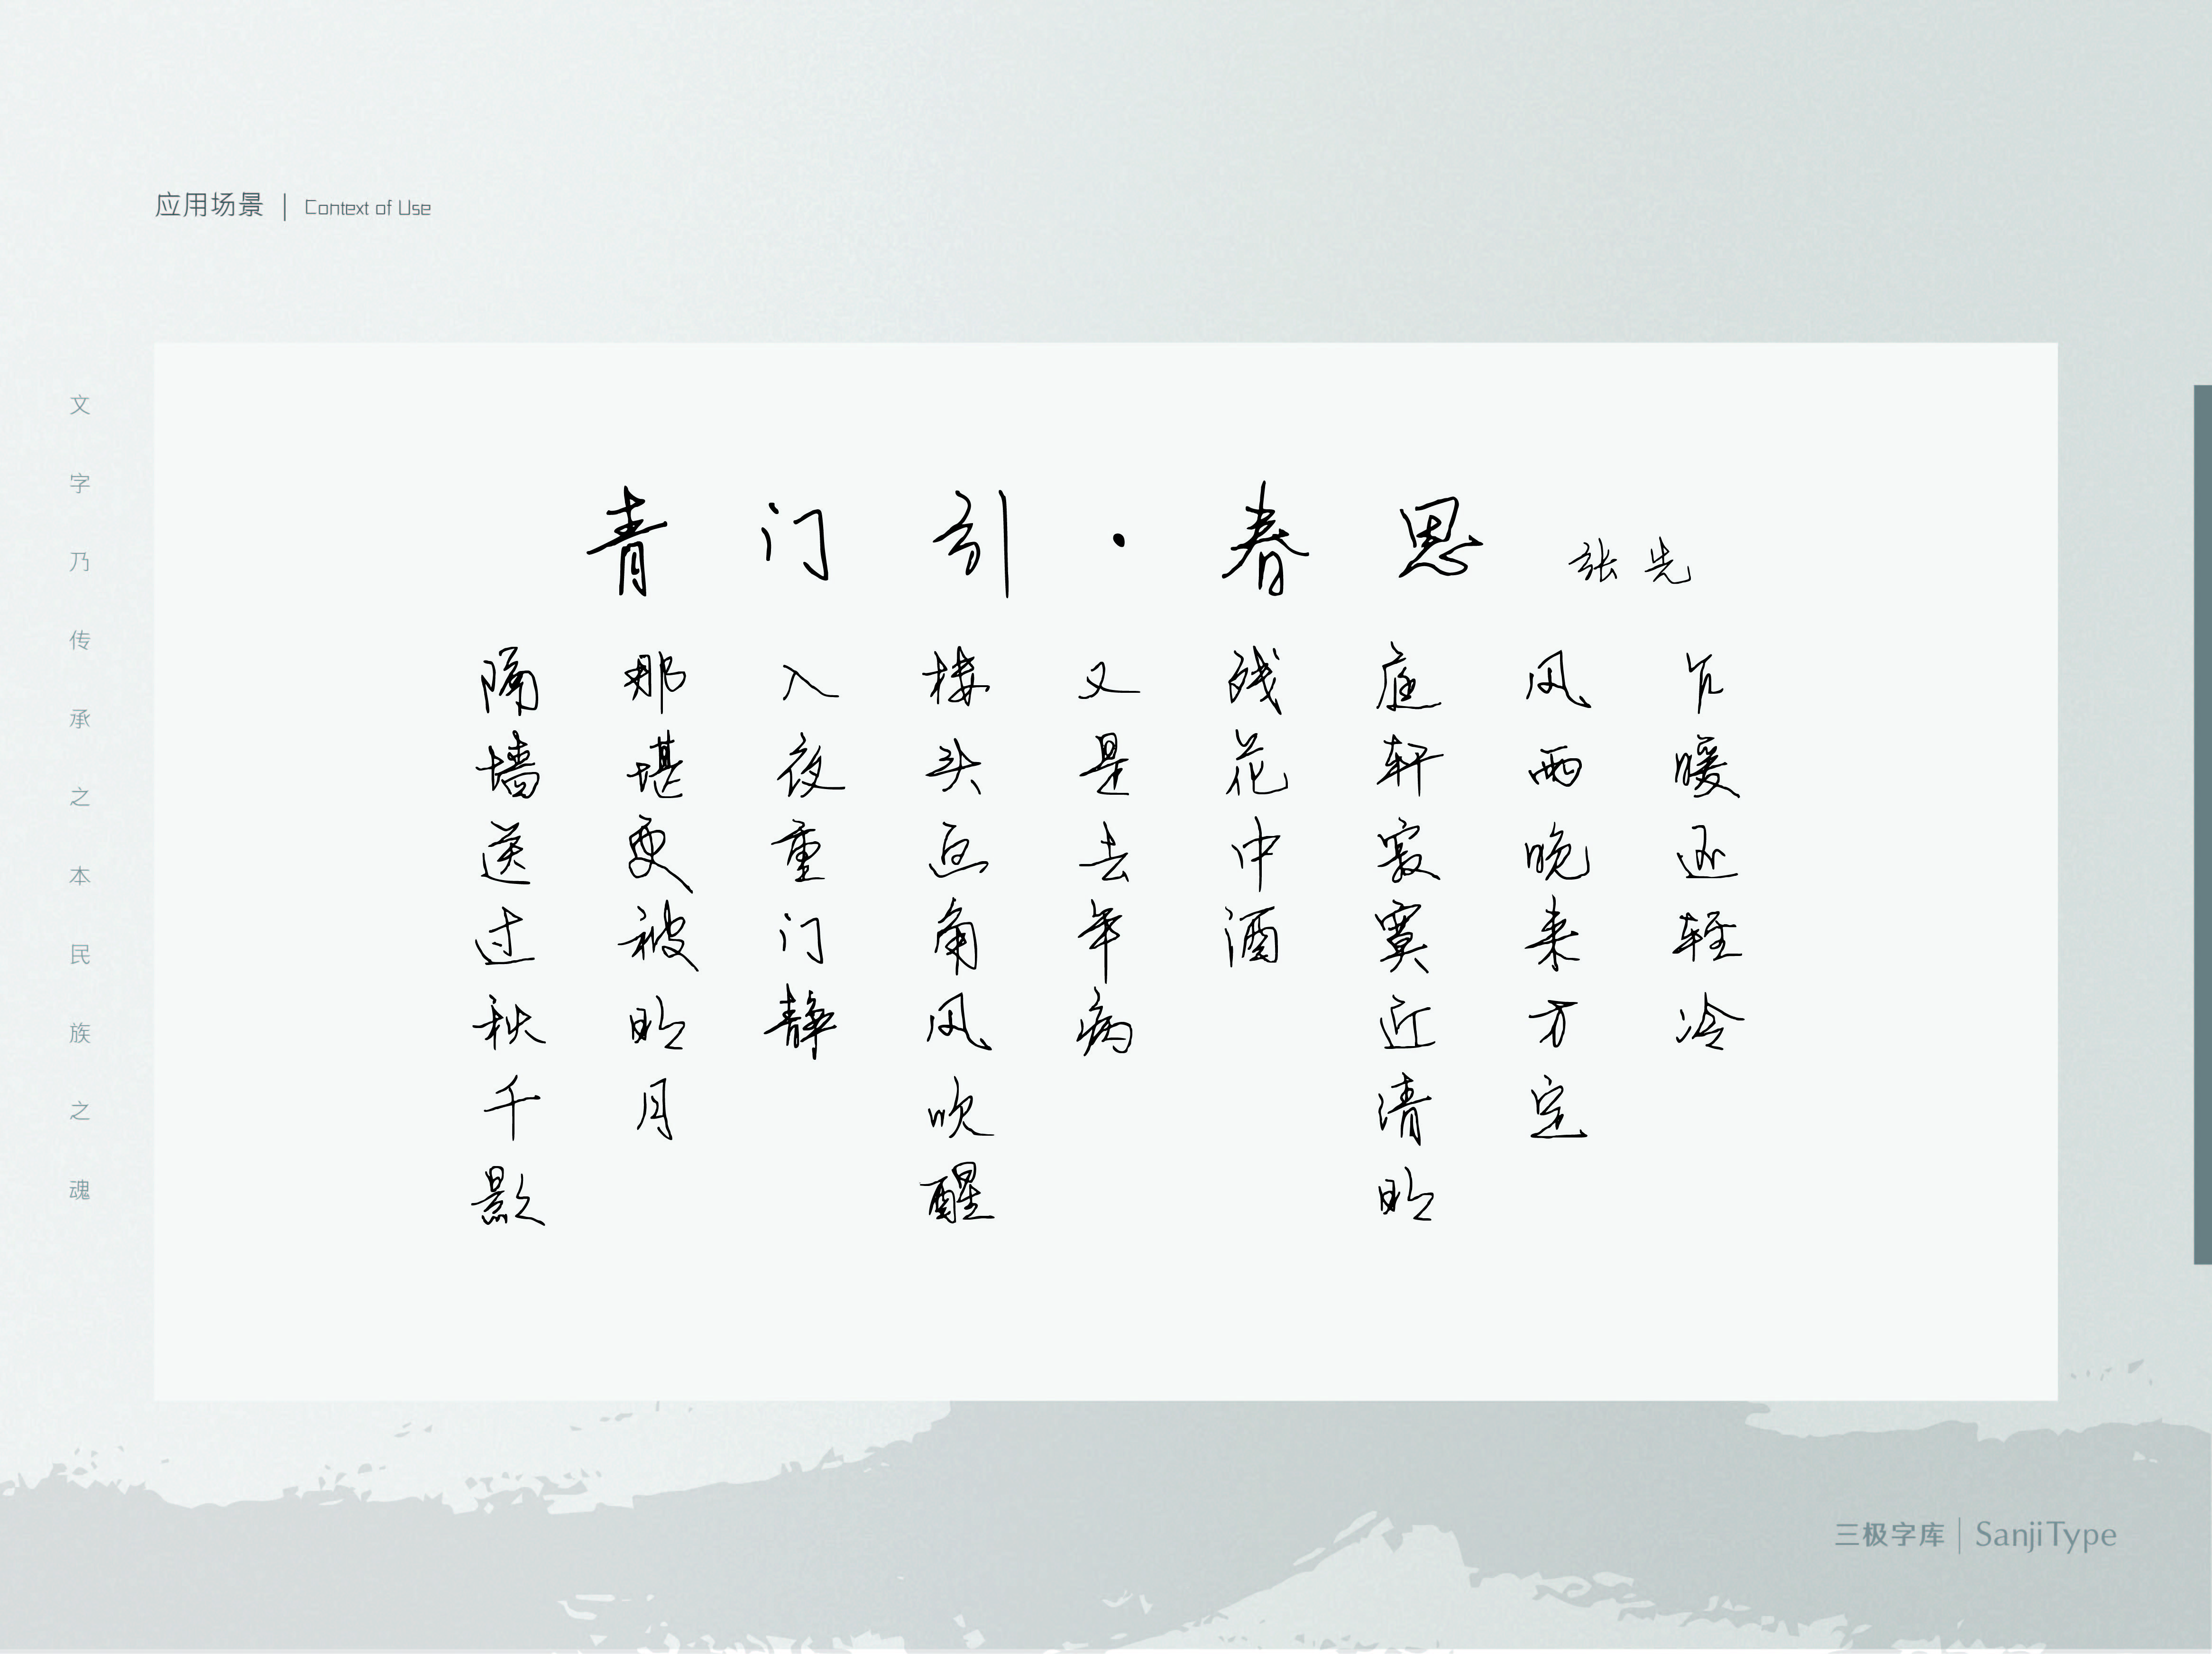 应用场景 | Context of Use
文字乃传承之本民族之魂
青门引·春思 张先
乍暖还轻冷
风雨晚来方定
庭轩寂寞近清明
残花中酒
又是去年病
楼头画角风吹醒
入夜重门静
那堪更被明月
隔墙送过秋千影
三极字库 | SanjiType